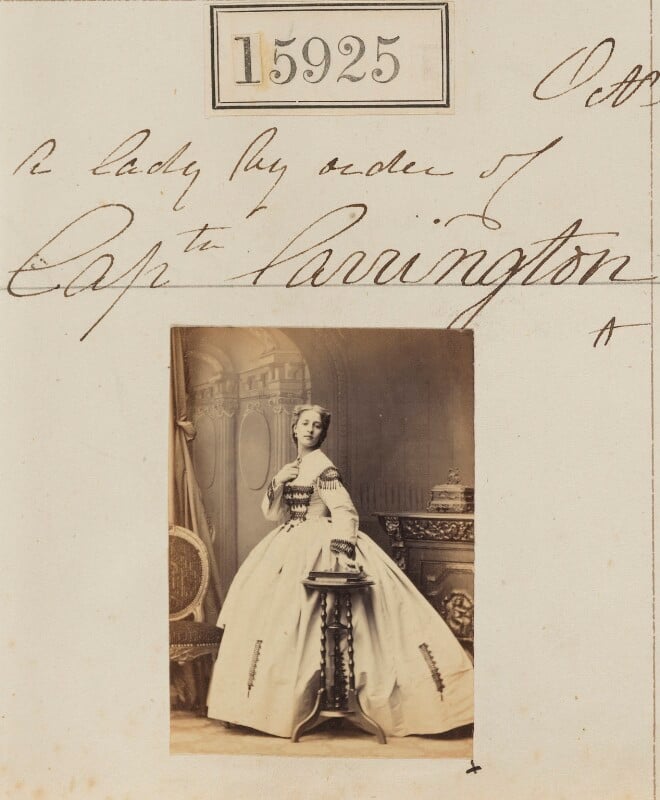 15925
Oct
A lady by order of
Captn Carrington
A